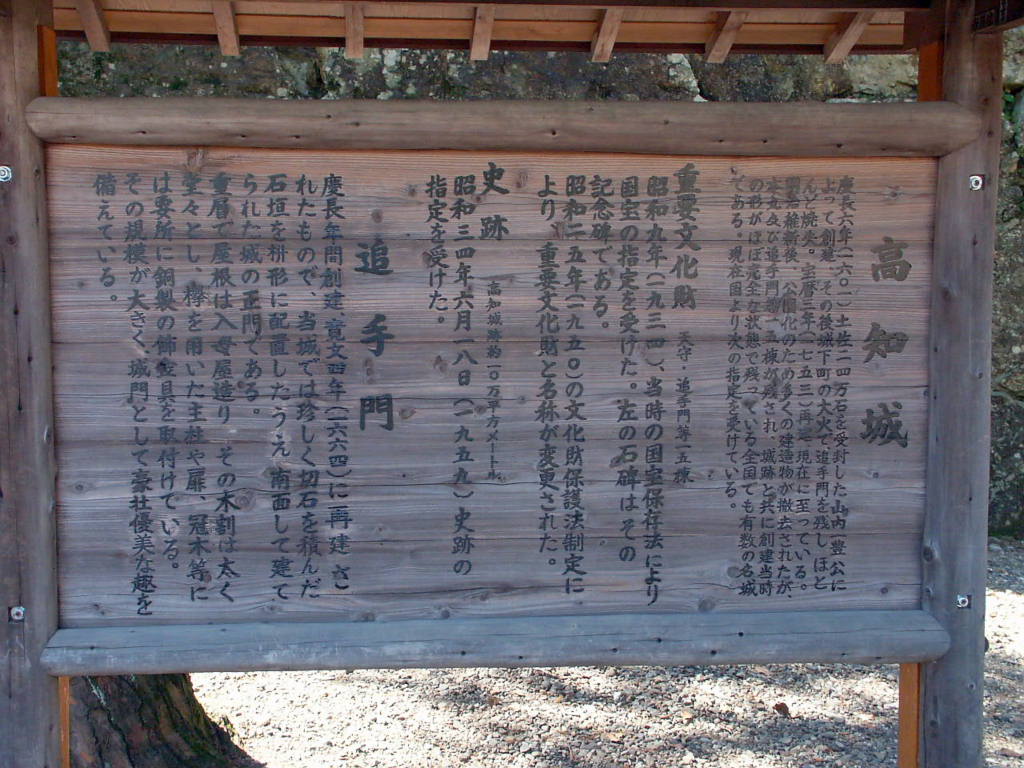 高知城
慶長六年(一六〇一)土佐二四万石を受封した山内一豊公に
よって創建、その後城下町の大火で追手門を残しほと
んど焼失。宝暦三年(一七五三)再建現在に至っている。
明治維新後、公園化のため多くの建造物が撤去されたが、
本丸及び追手門等一五棟が残され、城跡と共に創建当時
の形がほぼ完全な状態で残っている全国でも有数の名城
である。現在国より次の指定を受けている。
重要文化財 天守・追手門等一五棟
昭和九年(一九三四)、当時の国宝保存法により
国宝の指定を受けた。左の石碑はその
記念碑である。
昭和二五年(一九五〇)の文化財保護法制定に
より、重要文化財と名称が変更された。
史跡 高知城跡約一〇万平方メートル
昭和三四年六月一八日(一九五九)史跡の
指定を受けた。
追手門
慶長年間創建、寛文四年(一六六四)に再建さ
れたもので、当城では珍しく切石を積んだ
石垣を枡形に配置したうえ、南面して建て
られた城の正門である。
重層で屋根は入母屋造り、その木割は太く
堂々とし、欅を用いた主柱や扉、冠木等に
は要所に銅製の飾金具を取付けている。
その規模が大きく、城門として豪壮優美な趣を
備えている。